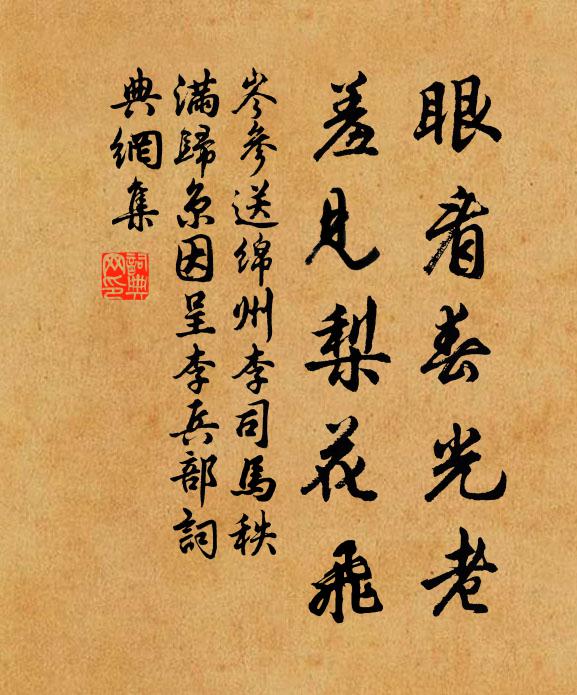 眼看春光老
羞見梨花飛
岑參送綿州李司馬秩
滿歸京因呈李兵部詞
典網集
詞典网印